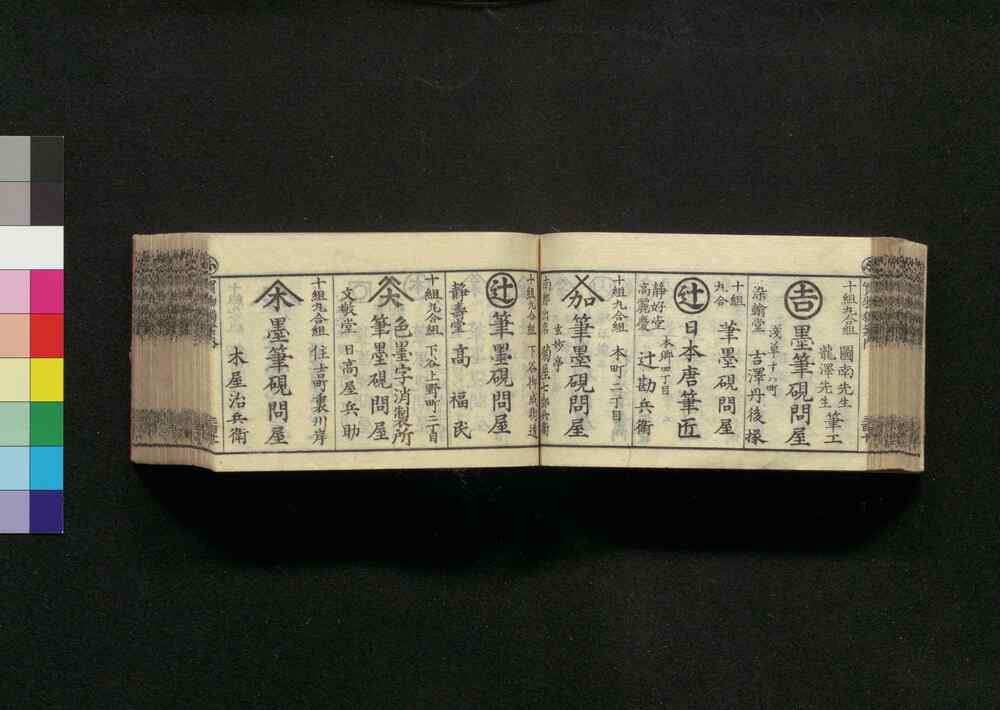 十組九合組
圖南先生
龍澤先生
筆工
吉
墨筆硯問屋
浅草十八町
染翰堂
古澤丹後掾
十組
九合
筆墨硯問屋
辻
日本唐筆匠
静好堂
高麗慶
本郷四丁目
辻勘兵衛
十組九合組
本町二丁目
加
筆墨硯問屋
玄妙亭
十組九合組
辻
筆墨硯問屋
静壽堂
高福民
十組九合組
下谷上野町二丁目
色墨字消製所
筆墨硯問屋
文敬堂
日高屋兵助
十組九合組
住吉町裏川岸
木
墨筆硯問屋
木屋治兵衛